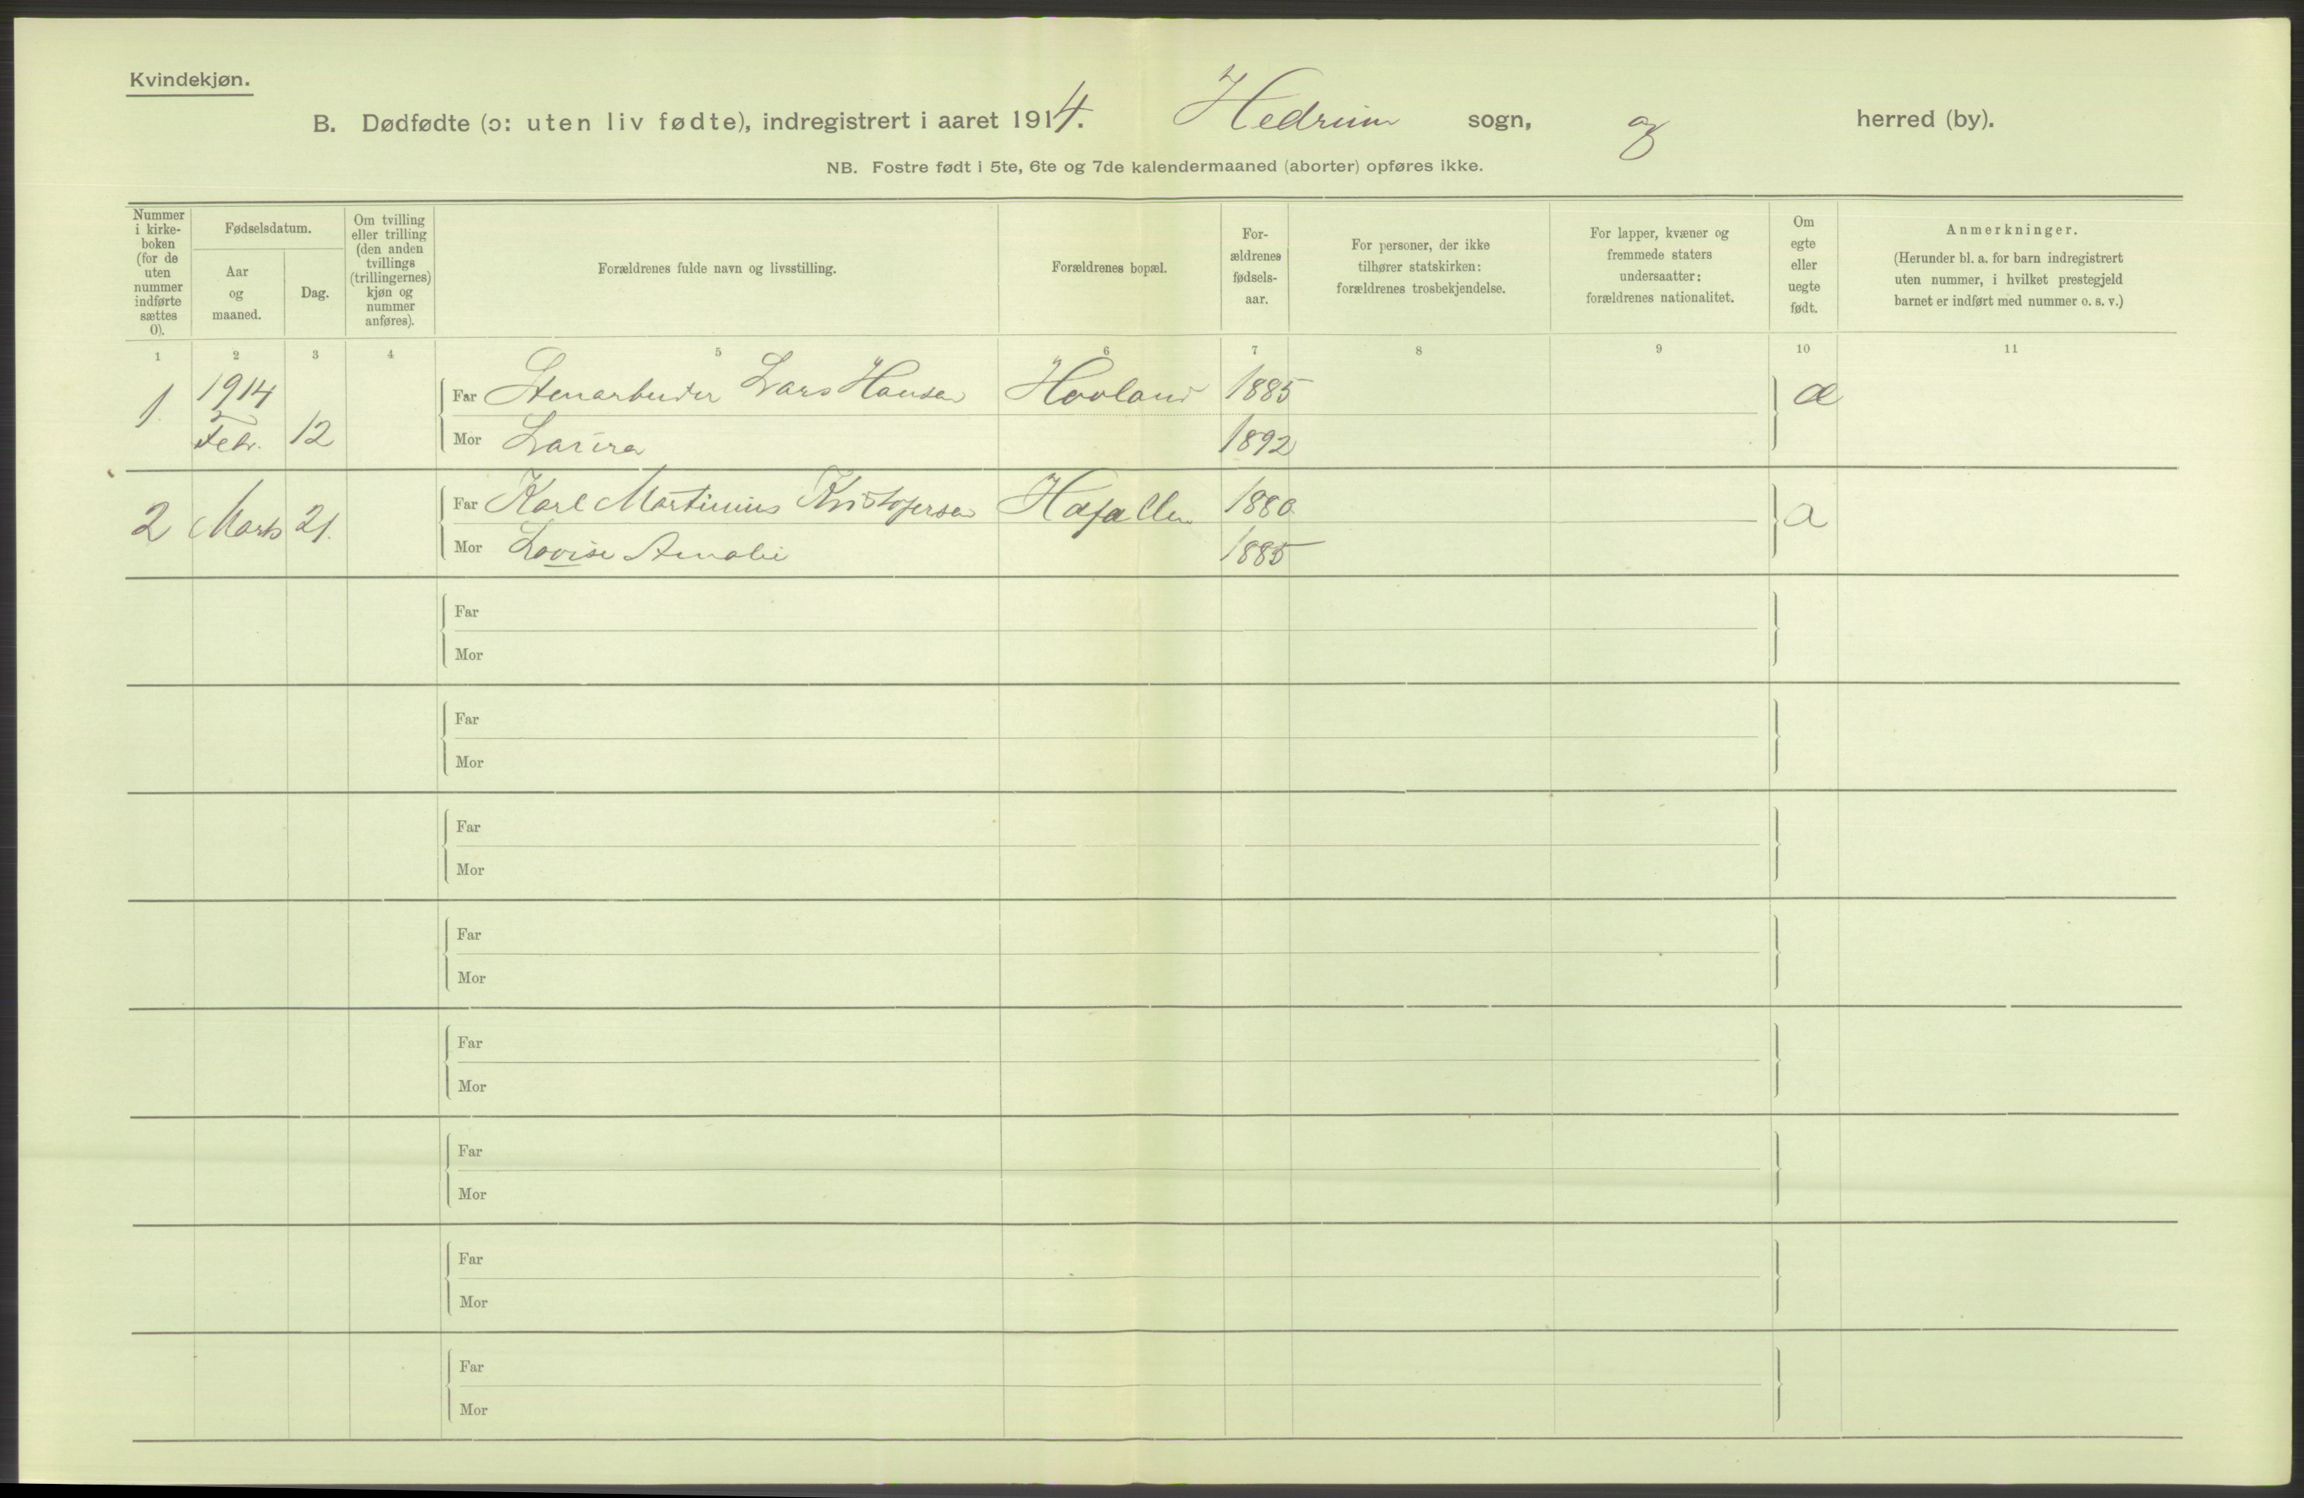 Kvindekjøn.
B. Dødfødte (ɔ: uten liv fødte), indregistrert i aaret 1914. Hedrum sogn, og herred (by).
NB. Fostre født i 5te, 6te og 7de kalendermaaned (aborter) opføres ikke.
Nummer
i kirke-
boken
(for de
uten
nummer
indførte
sættes
0).
Fødselsdatum.
Aar
og
maaned.
Dag.
Om tvilling
eller trilling
(den anden
tvillings
(trillingernes)
kjøn og
nummer
anføres).
Forældrenes fulde navn og livsstilling.
Forældrenes bopæl.
For-
ældrenes
fødsels-
aar.
For personer, der ikke
tilhører statskirken:
forældrenes trosbekjendelse.
For lapper, kvæner og
fremmede staters
undersaatter:
forældrenes nationalitet.
Om
egte
eller
uegte
født.
Anmerkninger.
(Herunder bl. a. for barn indregistrert
uten nummer, i hvilket prestegjeld
barnet er indført med nummer o. s. v.)
1 2 3 4 5 6 7 8 9 10 11
1. 1914 Febr. 12
Far Stenarbeider Lars Hansen Hovland 1885 æ
Mor 1892
2 Marts 21.
Far Karl Martinius Kristofersen 1880
Mor Lovise Amalie 1885
Far
Mor
Far
Mor
Far
Mor
Far
Mor
Far
Mor
Far
Mor
Far
Mor
Far
Mor